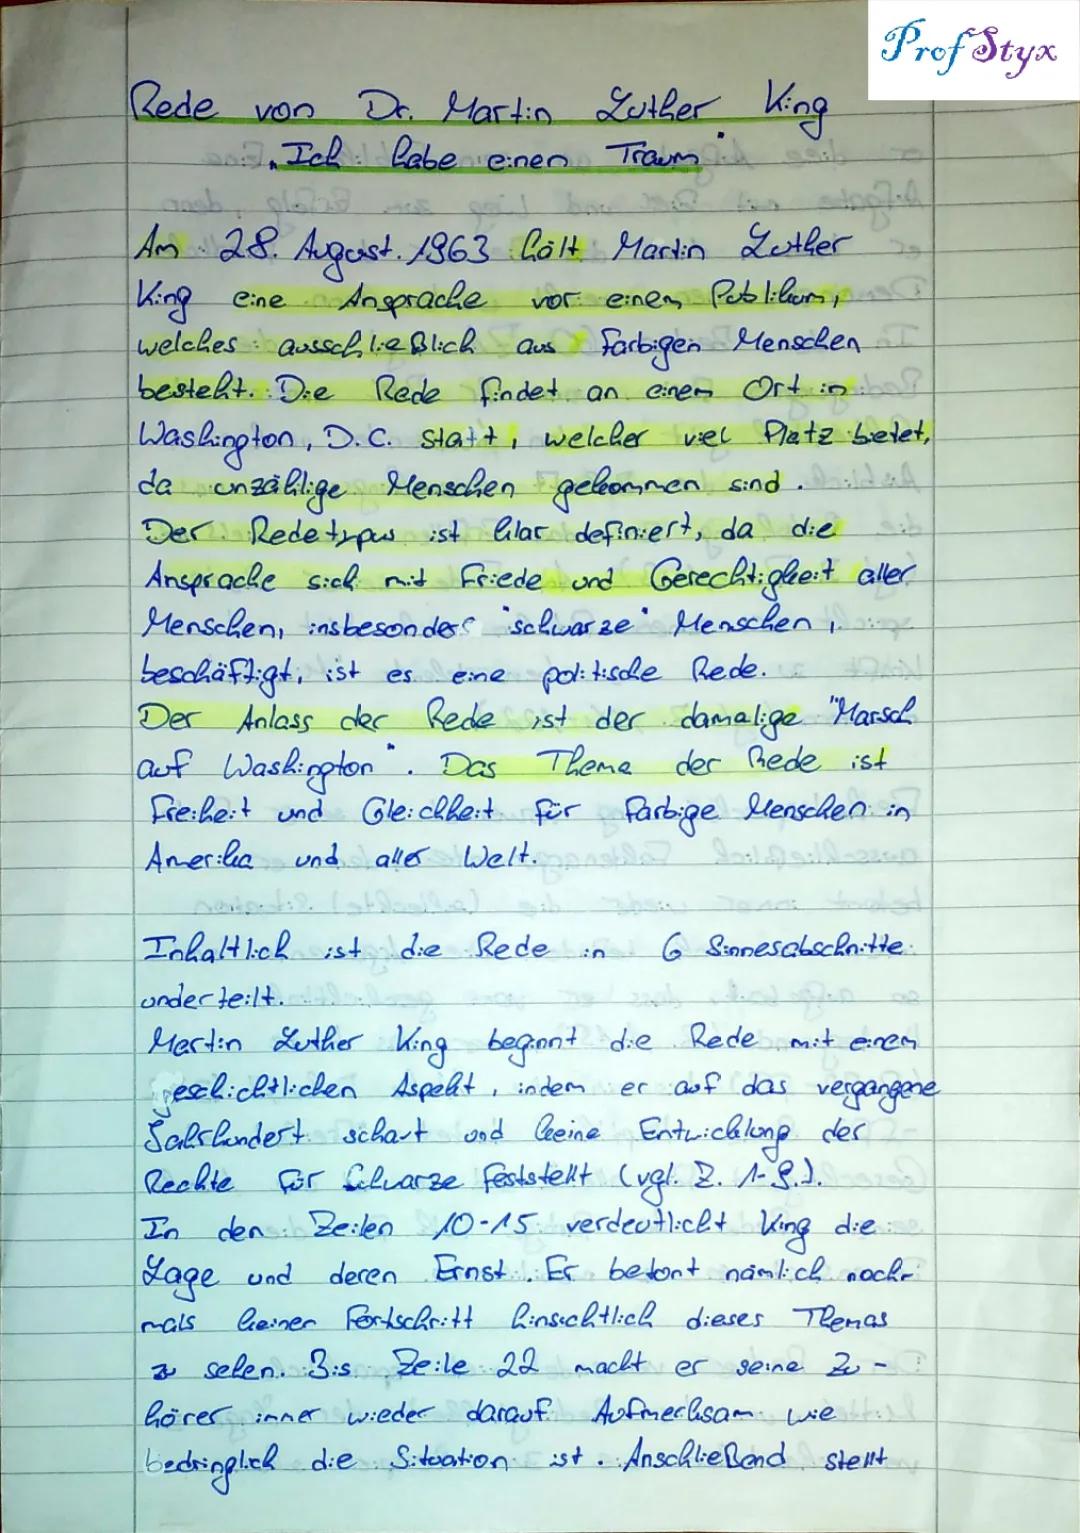 Prof Styx
Rede von Dr. Martin Luther King
„Ich habe einen Traum"
Am 28. August 1963 hält Martin Luther
King eine Ansprache vor einem Publikum,
welches ausschließlich aus farbigen Menschen
besteht. Die Rede findet an einem Ort in
Washington, D.C. statt, welcher viel Platz bietet,
da unzählige Menschen gekommen sind.
Der Redetypus ist klar definiert, da die
Ansprache sich mit Friede und Gerechtigkeit aller
Menschen, insbesonders "schwarze" Menschen,
beschäftigt, ist es eine politische Rede.
Der Anlass der Rede ist der damalige "Marsch
auf Washington". Das Thema der Rede ist
Freiheit und Gleichheit für farbige Menschen in
Amerika und aller Welt.
Inhaltlich ist die Rede in 6 Sinnesabschnitte
underteilt.
Martin Luther King beginnt die Rede mit einem
geschichtlichen Aspekt, indem er auf das vergangene
Jahrhundert schaut und keine Entwicklung der
Rechte für Schwarze feststellt (vgl. Z. 1-9.).
In den Zeilen 10-15 verdeutlicht King die
Lage und deren Ernst. Er betont nämlich noch-
mals keinen Fortschritt hinsichtlich dieses Themas
zu sehen. Bis Zeile 22 macht er seine Zu-
hörer immer wieder darauf Aufmerksam wie
bedringlich die Situation ist. Anschließend stellt